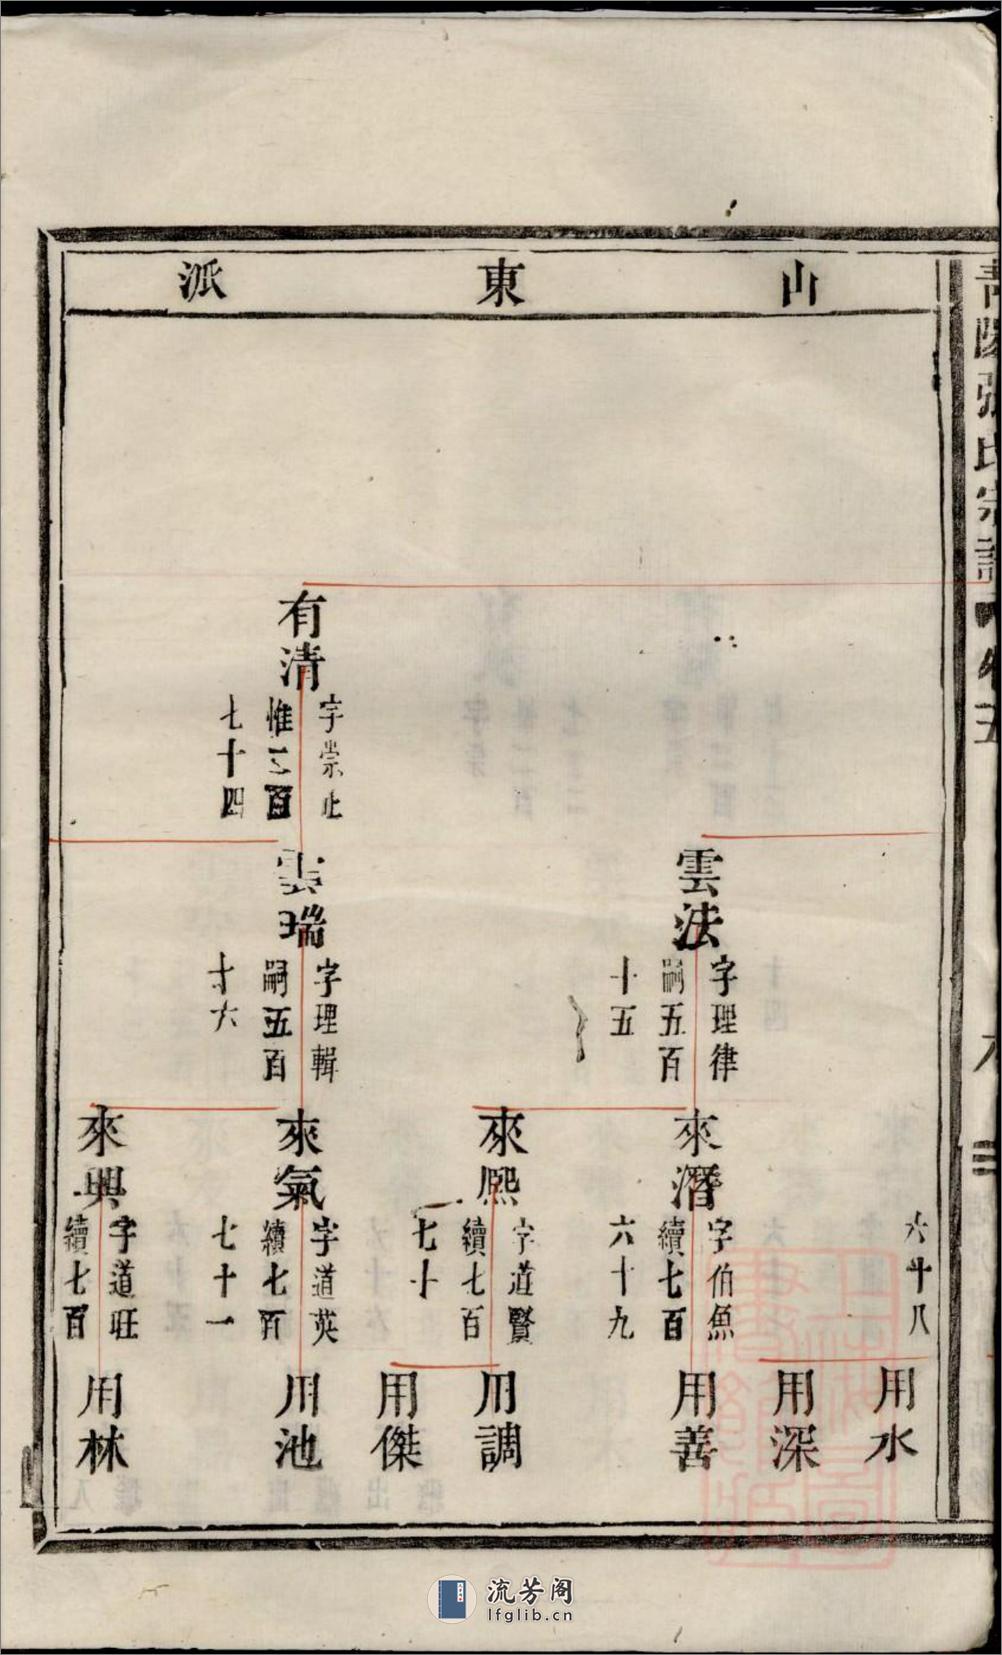 山東派
青陽張氏宗譜 卷五
八
有清
字崇止
惟二百
七十四
雲法
字理律
嗣五百
十五
雲瑞
字理輯
嗣五百
十六
六十八
來潛
字伯魚
續七百
六十九
來熙
字道賢
續七百
七十
來氣
字道英
續七百
七十一
來興
字道旺
續七百
用水
用深
用善
用調
用傑
用池
用林
流芳阁
lfglib.cn